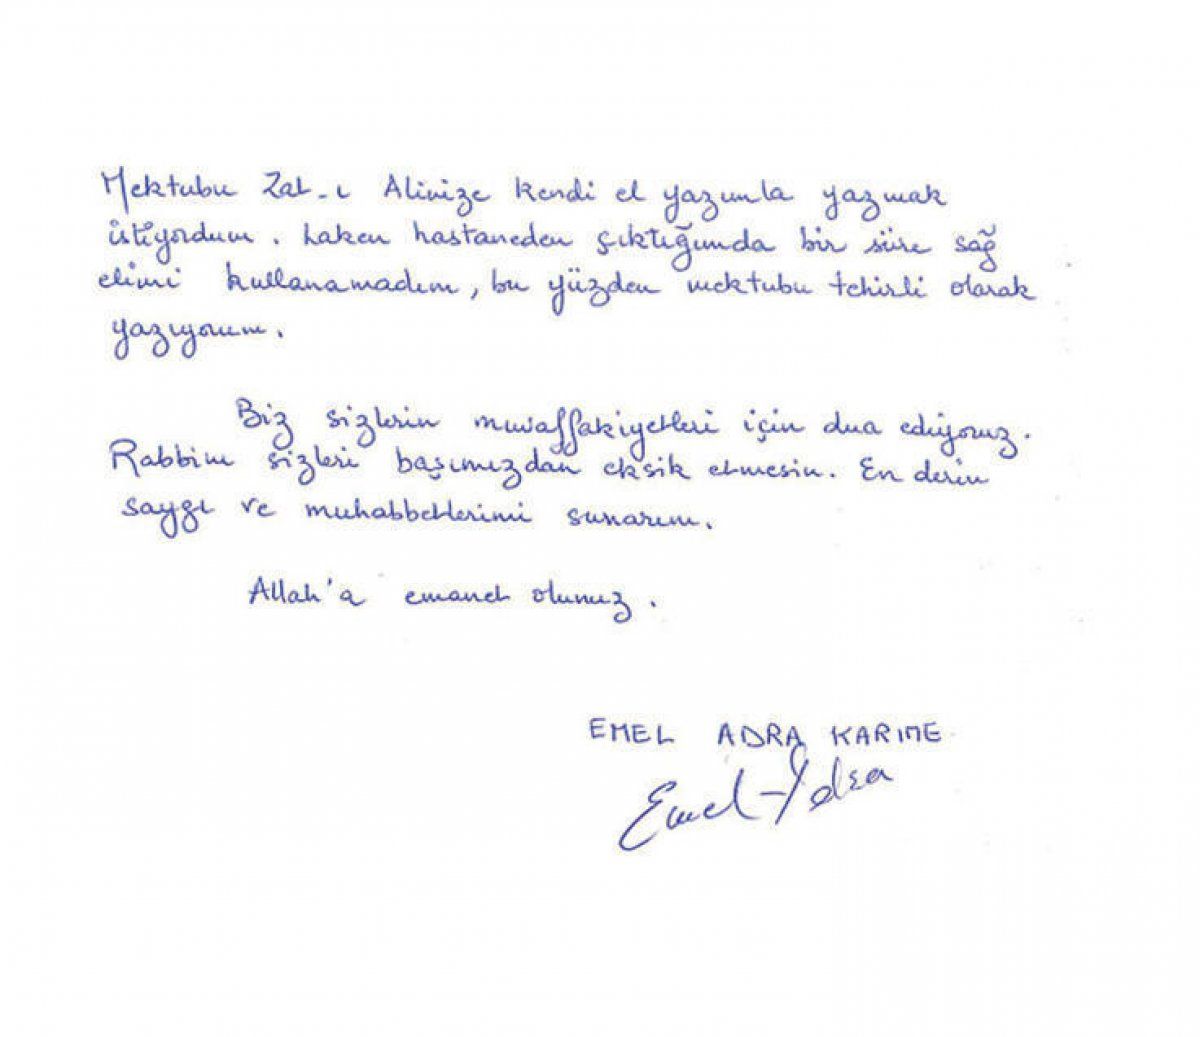 Mektubu Zat-ı Alinize kendi el yazımla yazmak
istiyordum. Laken hastaneden çıktığımda bir süre sağ
elimi kullanamadım, bu yüzden mektubu tehirli olarak
yazıyorum.
Biz sizlerin muvaffakiyetleri için dua ediyoruz.
Rabbim sizleri başımızdan eksik etmesin. En derin
saygı ve muhabbetlerimi sunarım.
Allah'a emanet olunuz.
EMEL ADRA KARIME
Emel-Adra